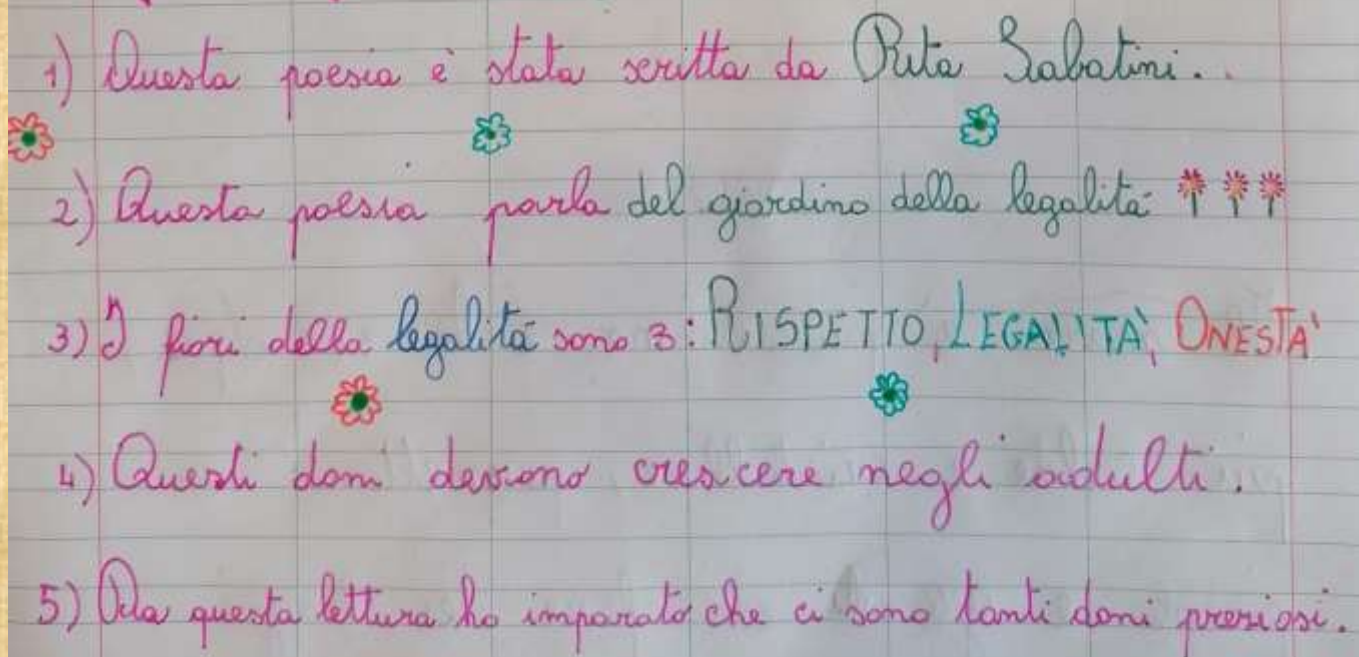 1) Questa poesia è stata scritta da Rita Sabatini.
2) Questa poesia parla del giardino della legalità
3) I fiori della legalità sono 3: RISPETTO, LEGALITÀ, ONESTÀ
4) Questi doni devono crescere negli adulti.
5) Da questa lettura ho imparato che ci sono tanti doni preziosi.